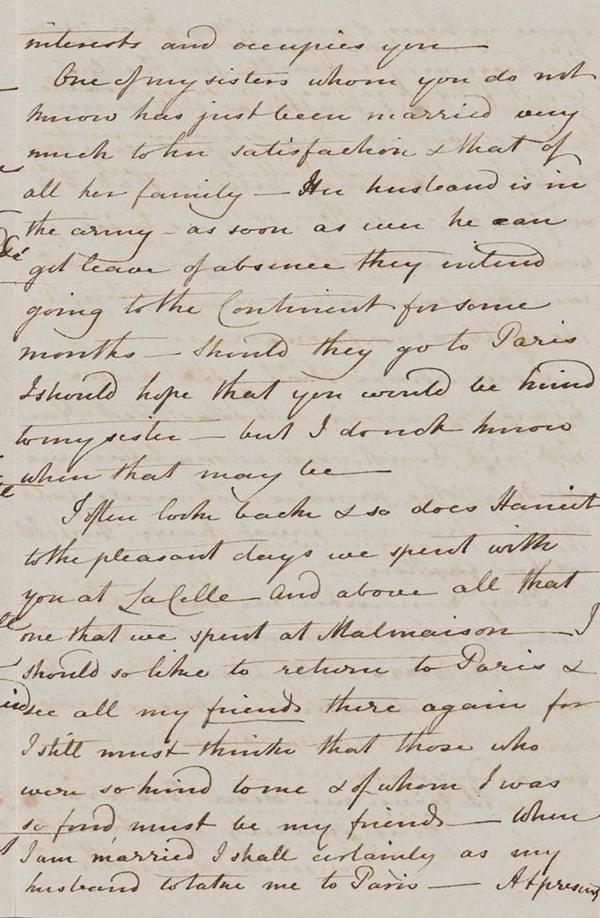 interests and occupies you —
One of my sisters whom you do not
know has just been married very
much to her satisfaction & that of
all her family — Her husband is in
the army — as soon as ever he can
get leave of absence they intend
going to the Continent for some
months — Should they go to Paris
I should hope that you would be kind
to my sister — but I do not know
when that may be —
I often look back & so does Harriet
to the pleasant days we spent with
you at La Celle And above all that
one that we spent at Malmaison — I
should so like to return to Paris &
see all my friends there again for
I still must think that those who
were so kind to me & of whom I was
so fond must be my friends — When
I am married I shall certainly as my
husband to take me to Paris — At present